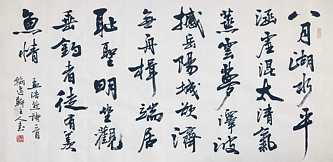 八月湖水平
涵虛混太清氣
蒸雲夢澤波
撼岳陽城欲濟
無舟楫端居
恥聖明坐觀
垂釣者徒有羨
魚情
孟浩然詩一首